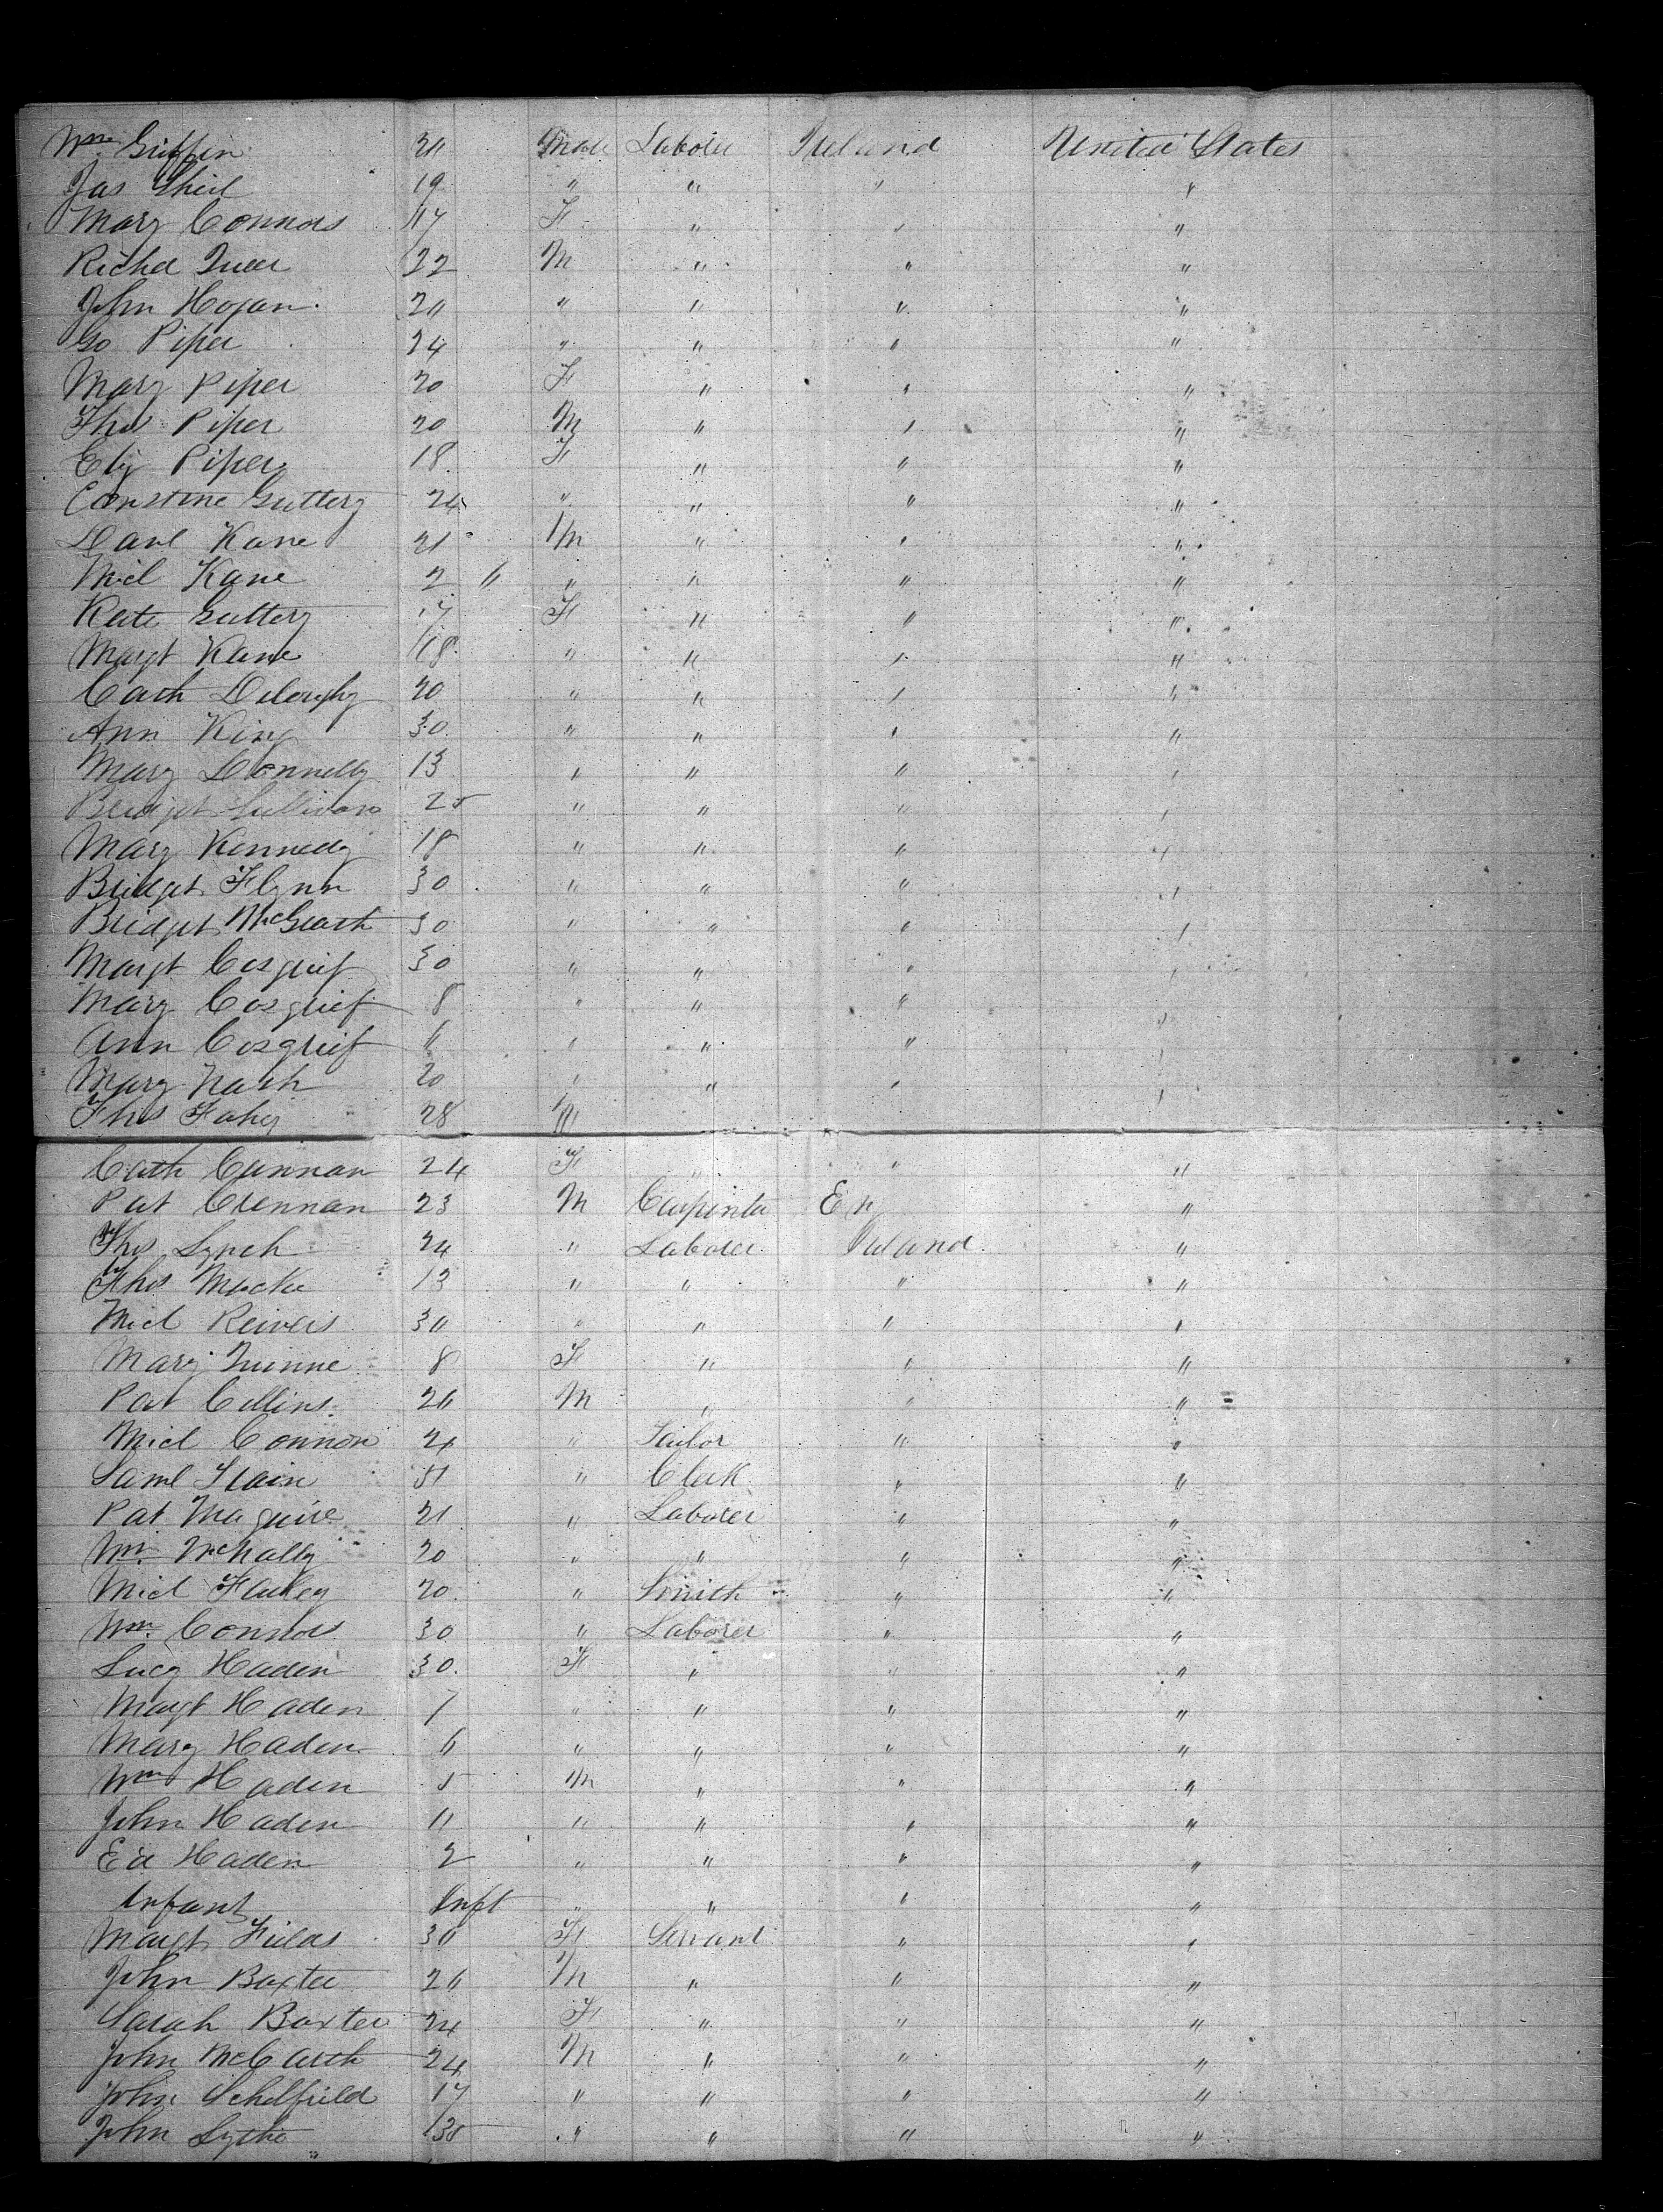 Wm Griffin 20 Male Laborer Ireland United States
Jas Shiel 19 " " " "
Mary Connors 17 F " " "
Richd Tuer 22 M " " "
John Hogan 20 " " " "
Go Piper 24 " " " "
Mary Piper 20 F " " "
Thos Piper 20 M " " "
Eliz Piper 18 F " " "
Constine Guttery 24 " " " "
Danl Kane 21 M " " "
Micl Kane 2 " " " " "
Kate Guttery 17 F " " "
Margt Kane 18 " " " "
Cath 20 " " " "
Ann King 30 " " " "
Mary Donnelly 13 " " " "
Bridget Sullivan 25 " " " "
Mary Kennedy 18 " " " "
Bridget Flynn 30 " " " "
Bridget McGrath 30 " " " "
Margt Cosgrief 30 " " " "
Mary Cosgrief 8 " " " "
Ann Cosgrief 6 " " " "
Mary Nash 20 " " " "
Thos Fahey 28 M
Cath Cannan 24 F " " "
Pat Crennan 23 M Carpinter En "
Thos Lynch 24 " Laborer Ireland "
Thos 13 " " " "
Micl Reivers 30 " " " "
Mary Quinne 8 F " " "
Pat Collins 20 M " " "
Micl Connon 24 " Tailor " "
Saml 31 " Clerk " "
Pat Maguire 21 " Laborer " "
Wm McNally 20 " " " "
Micl 20 " Smith " "
Wm Connors 30 " Laborer " "
Lucy Haden 30 F " " "
Margt Haden 7 " " " "
Mary Haden 6 " " " "
Wm Haden 5 M " " "
John Haden 4 " " " "
Ed Haden 2 " " " "
Infant Inft " " " "
Margt Fields 30 F Servant " "
John Baxter 26 M " " "
Sarah Baxter 24 F " " "
John McCarth 24 M " " "
John Scholfield 17 " " " "
John 35 " " " "